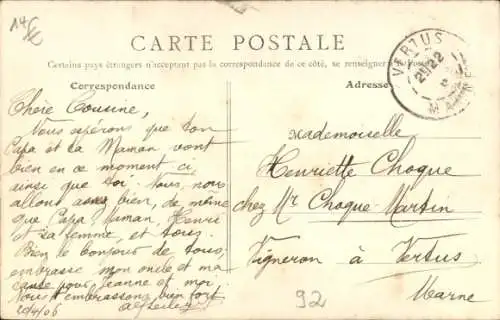 CARTE POSTALE
Certains pays étrangers n'acceptant pas la correspondance de ce côté, se renseigner à la Poste
Correspondance
Adresse
VERTUS
MARNE
Chère Cousine,
Nous espérons que ton
Papa et ta Maman vont
bien en ce moment ci,
ainsi que toi. Nous, nous
allons assez bien, de même
que Papa, Maman, Henri
et sa femme, et tous.
Bien le bonjour de tous,
embrasse mon oncle et ma
tante pour Jeanne et moi.
Nous t'embrassons bien fort
20/4/06
Mademoiselle
Henriette Choque
chez Mr Choque Martin
Vigneron à Vertus
Marne
92